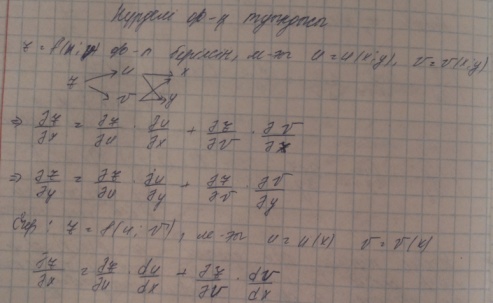 Күрделі ф-ң туындысы
z = f(u; v) ф-я берілген, м-ұы u = u(x; y), v = v(x; y)
z u v x y
⇒ ∂z/∂x = ∂z/∂u · ∂u/∂x + ∂z/∂v · ∂v/∂x
⇒ ∂z/∂y = ∂z/∂u · ∂u/∂y + ∂z/∂v · ∂v/∂y
z = f(u; v), u = u(x) v = v(x)
∂z/∂x = ∂z/∂u · du/dx + ∂z/∂v · dv/dx